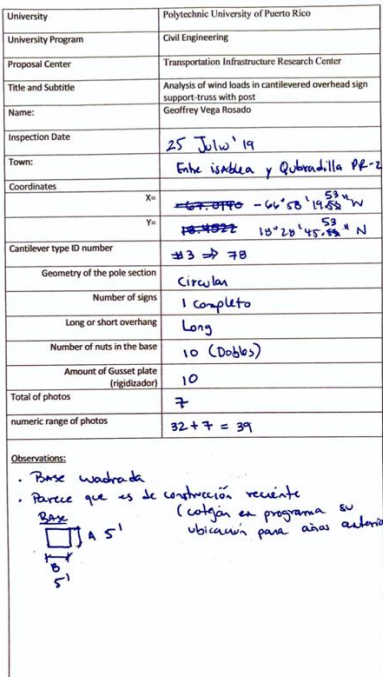 University Polytechnic University of Puerto Rico
University Program Civil Engineering
Proposal Center Transportation Infrastructure Research Center
Title and Subtitle Analysis of wind loads in cantilevered overhead sign
support-truss with post
Name: Geoffrey Vega Rosado
Inspection Date 25 Julio '19
Town: Entre isAblea y Qubradilla PR-2
Coordinates
X= -67.0140 -66°58'19.53" W
Y= 18.4822 18°28'45.53" N
Cantilever type ID number #3 ⇒ 78
Geometry of the pole section Circular
Number of signs 1 completo
Long or short overhang Long
Number of nuts in the base 10 (Dobles)
Amount of Gusset plate
(rigidizador) 10
Total of photos 7
numeric range of photos 32 + 7 = 39
Observations:
• Base cuadrada
• Parece que es de construcción reciente
(cotejar en programa su
ubicación para años anterio
BASE
A 5'
B
5'